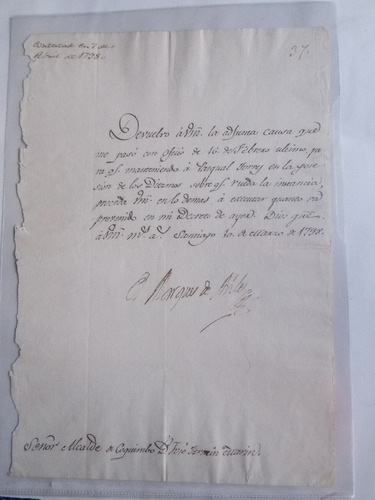 Contestada en 7 de
Abril de 1798.
37.
Devuelvo à Vm. la adjunta causa que
me pasó con oficio de 16 de Febrero ultimo, pa
ra qe. manteniendo à Pasqual Torres en la pose
sion de los sobre qe. rueda la instancia,
proceda Vm. en lo demas à executar quanto va
prevenido en mi Decreto de ayer. Dios gue.
à Vm. ms. as. Santiago 10 de Marzo de 1798.
El Marques de Aviles
Señor Alcalde de Coquimbo Dn. José Fermin Marin.